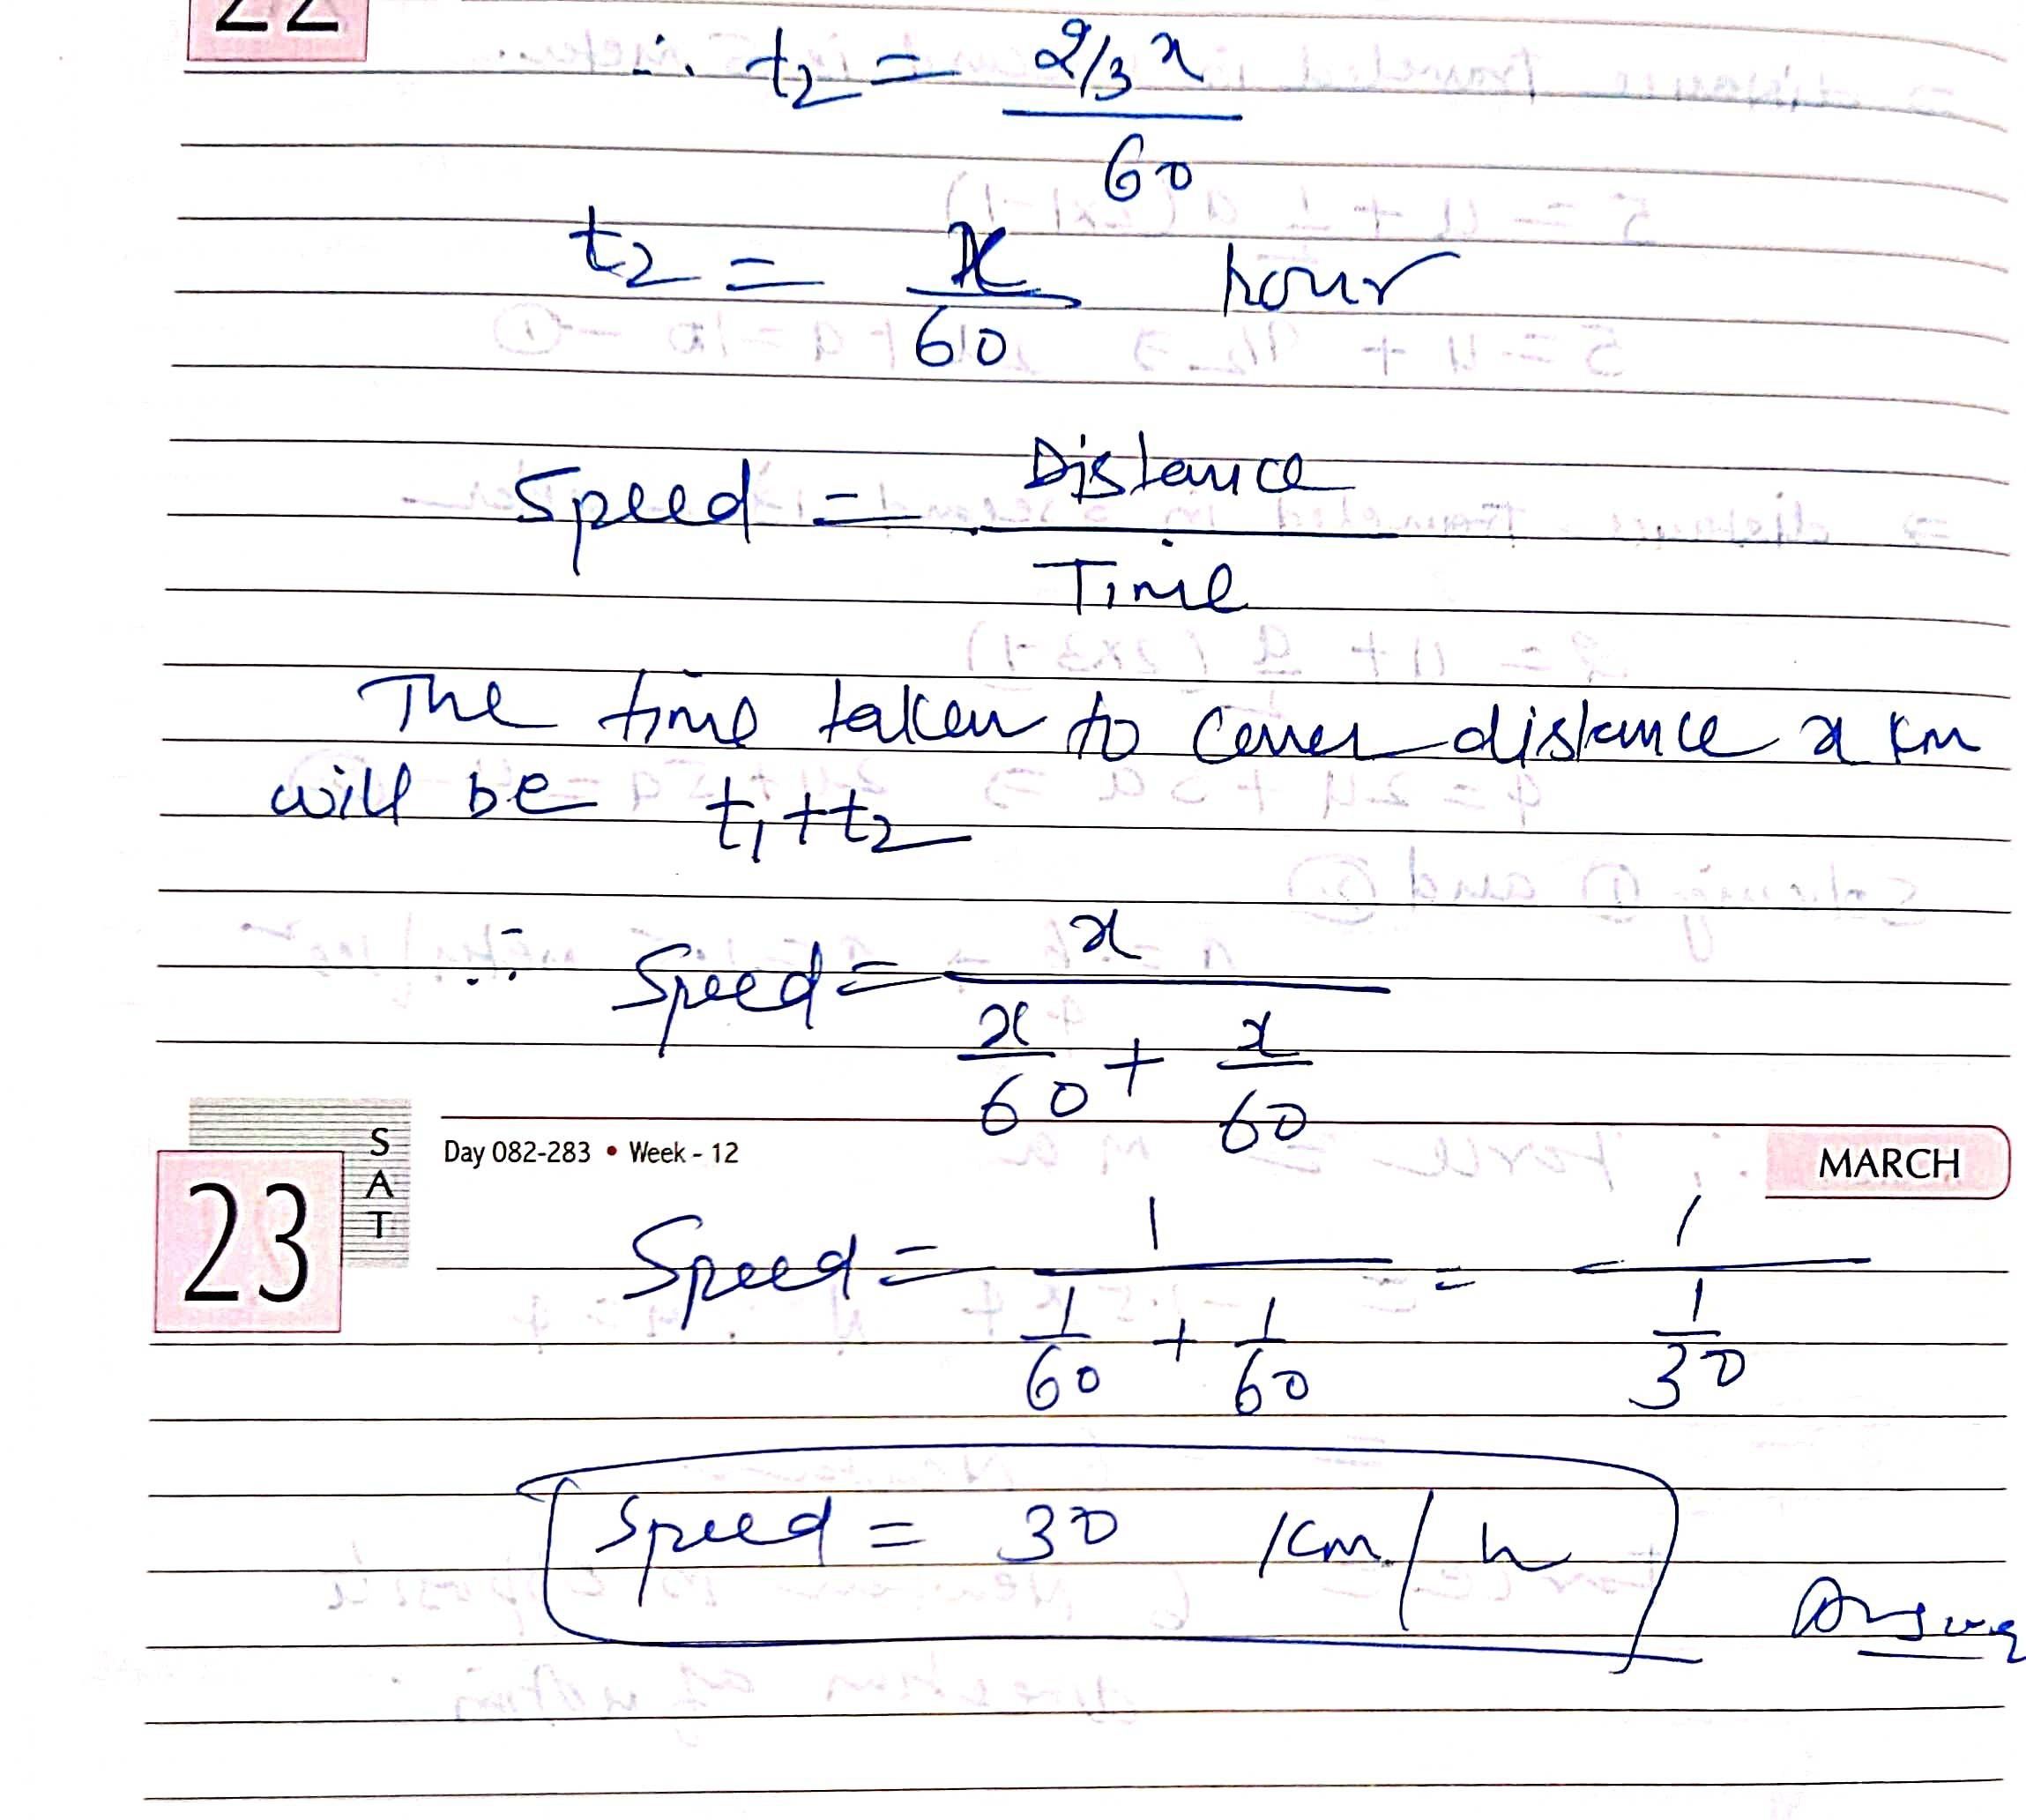 22
∴ t2 = 2/3 x
60
t2 = x hour
60
Speed = Distance
Time
The time taken to cover distance x km
will be t1+t2
∴ Speed = x
x/60 + x/60
S
A
T
23
Day 082-283 • Week - 12
MARCH
Speed = 1 = 1
1/60 + 1/60 1/30
Speed = 30 km/h
Answer